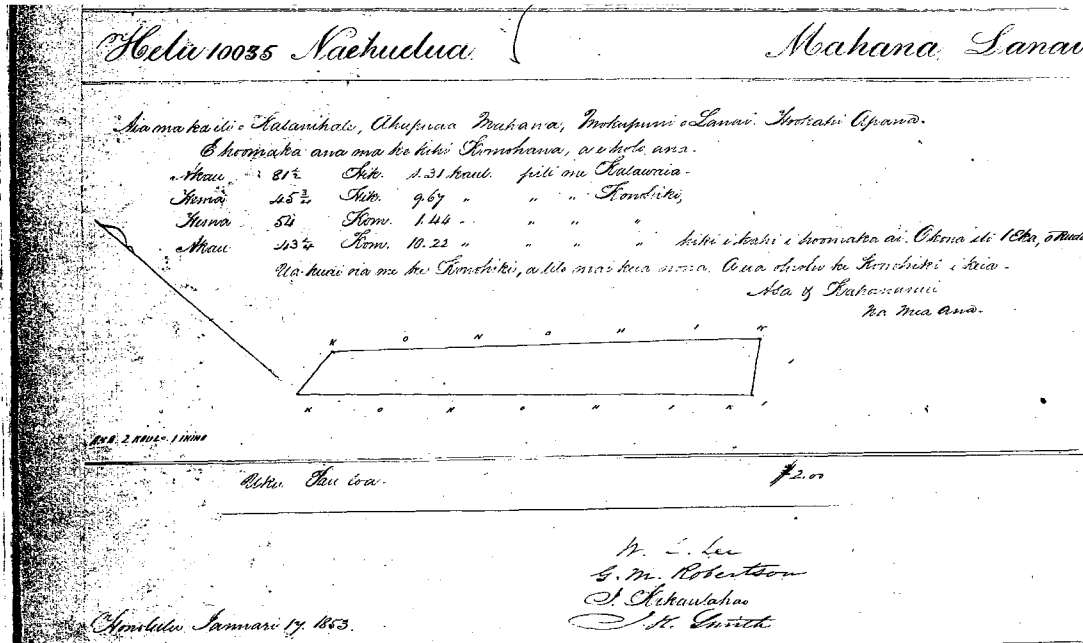 Helu 10035 Naehuelua Mahana, Lanai
Aia ma ka ili o Kalanihale, Ahupuaa Mahana, Mokupuni o Lanai. Hookahi Apana.
E hoomaka ana ma ke kihi Komohana, a e holo ana.
Akau 81½ Hik. 1.31 kaul. pili me Kalawaia.
Hema 45¾ Hik. 9.67 " " " Konohiki,
Hema 54 Kom. 1.44 " " "
Akau 43¼ Kom. 10.22 " " " kihi i kahi i hoomaka ai. Okona ili 1 Eka,
Ua kuai oia me ke Konohiki, a lilo mai keia nona. Aua oluolu ke Konohiki i keia.
Asa
Na mea ana.
K O N O H I K
K O N O H I K I
2 KAUL = 1 INIHA
Uku Pau loa. $2.00
W. L. Lee
G. M. Robertson
J. Kekaulahao
J. H. Smith
Honolulu Januari 17, 1853.